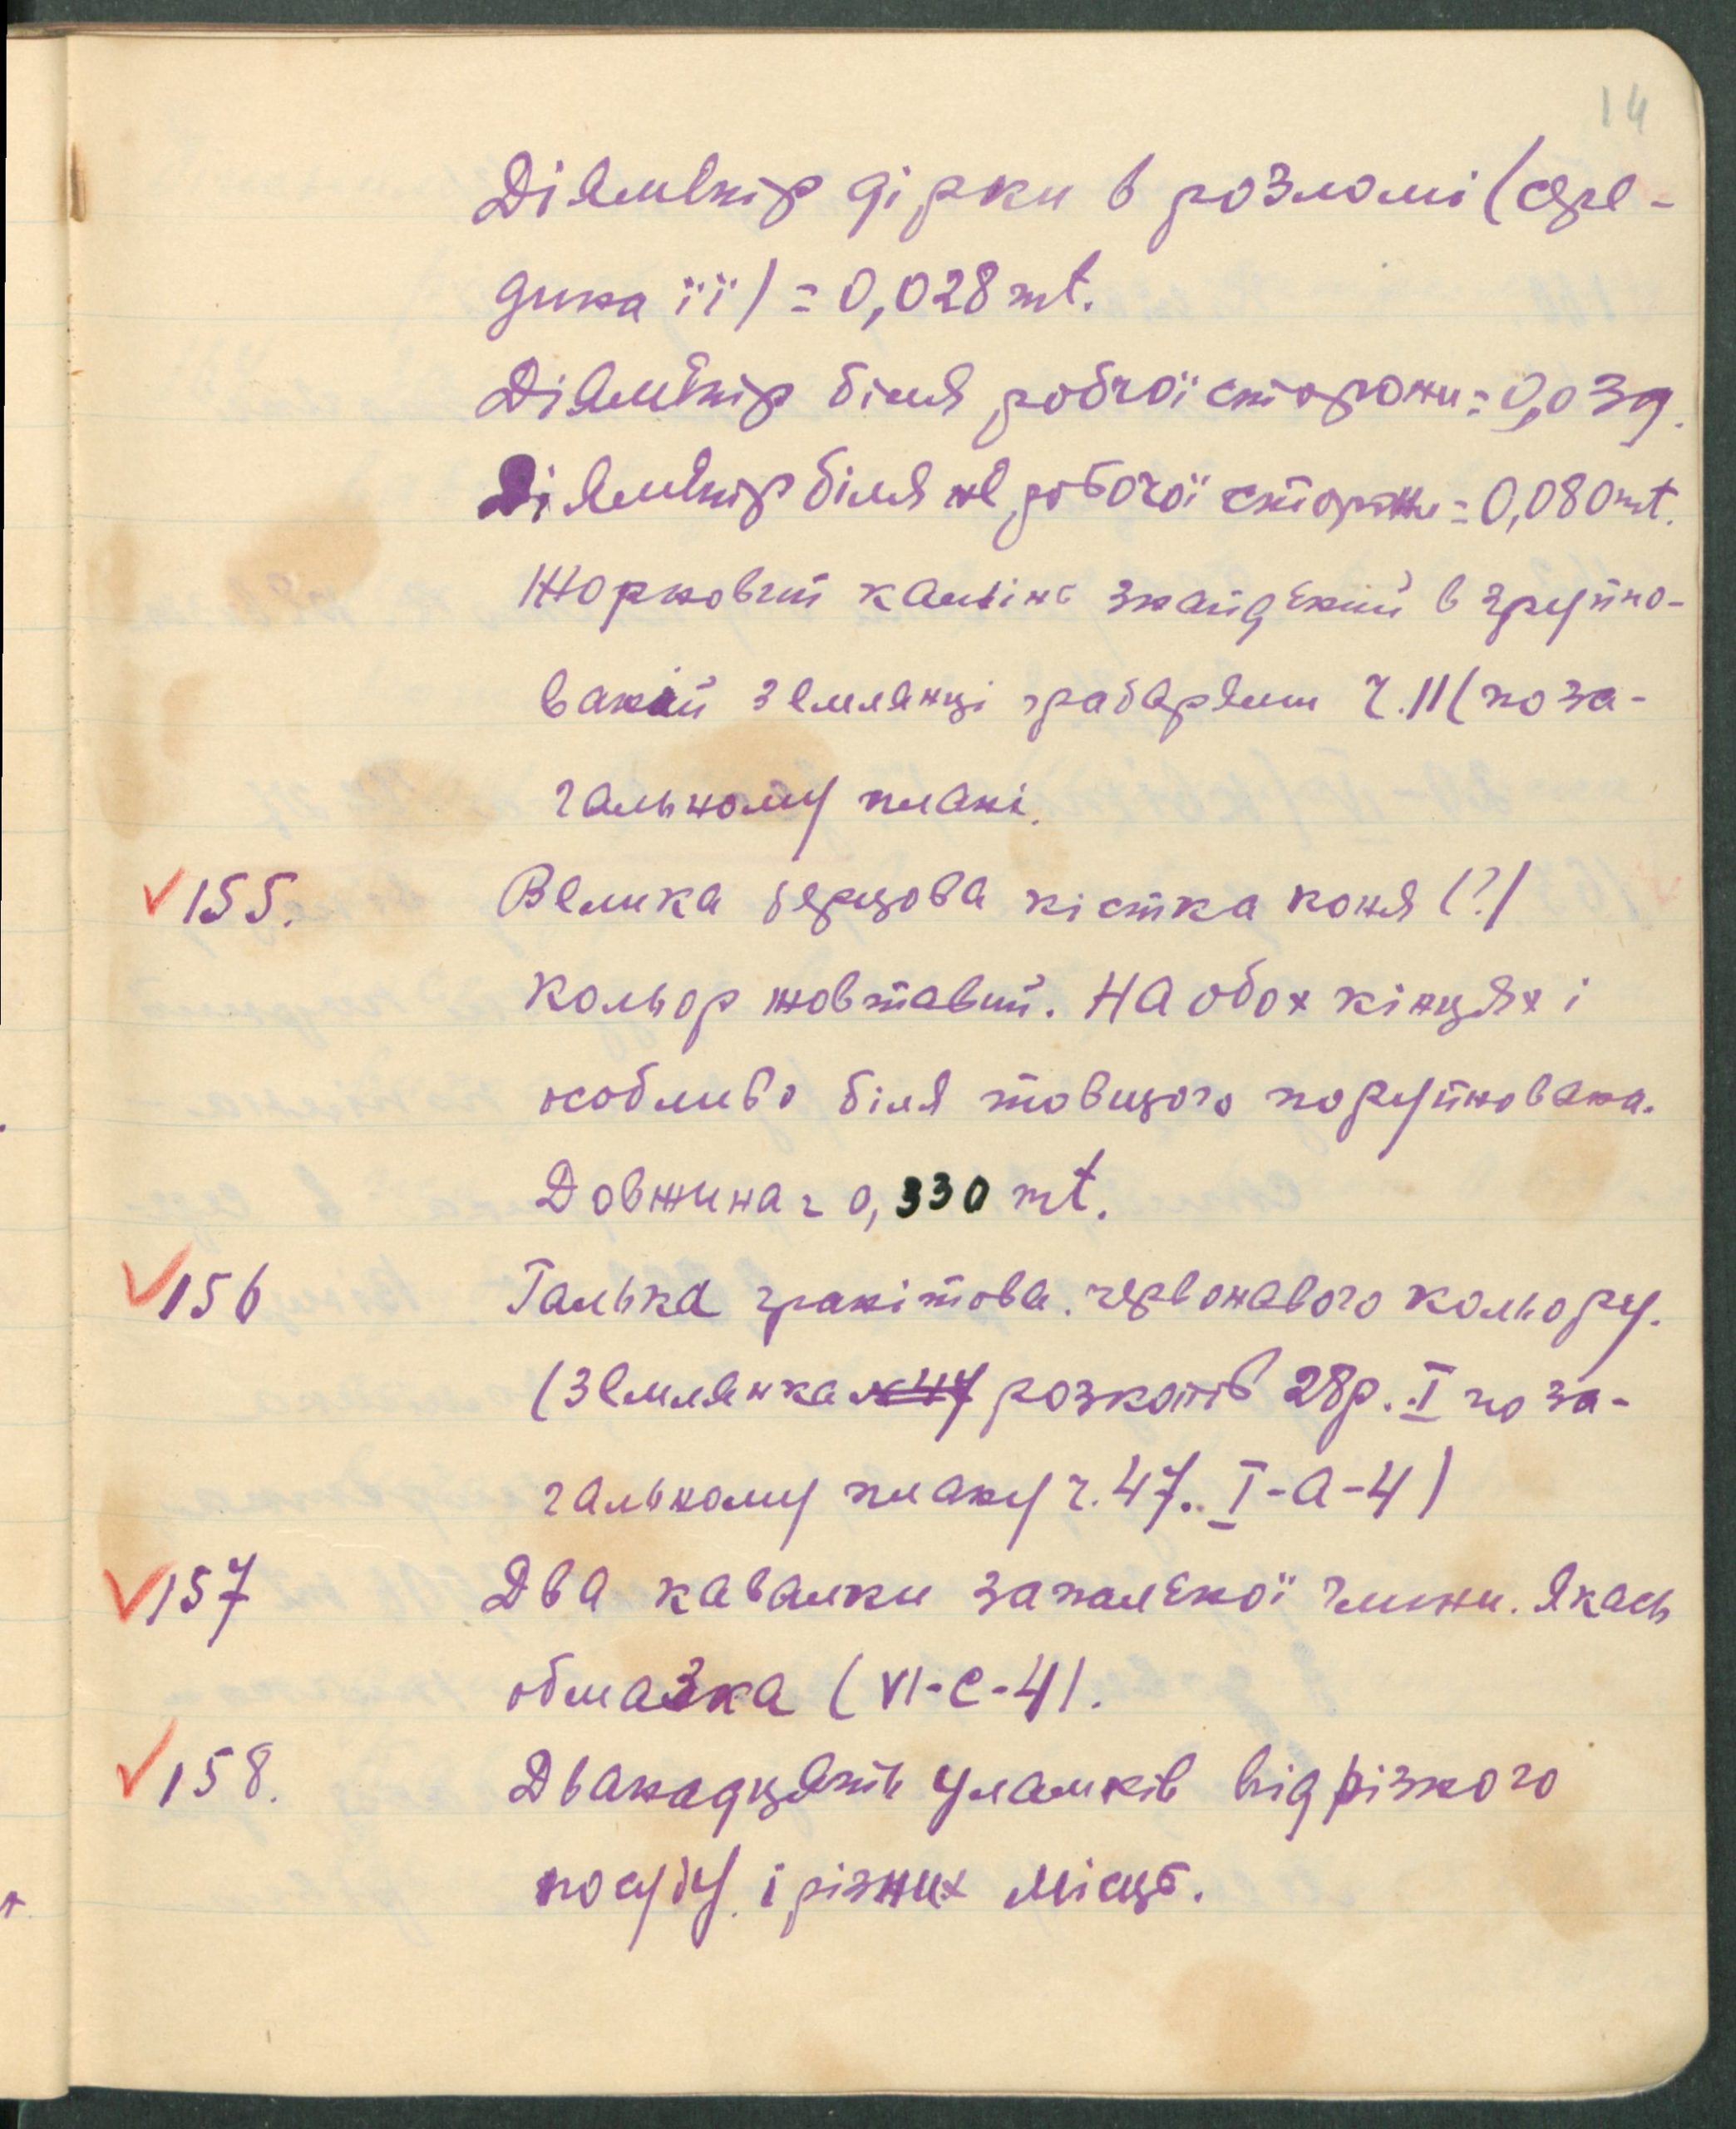 14
Діяметр дірки в розломі (сере-
дина її) = 0,028 mt.
Діяметр біля робчої сторони = 0,039.
Діяметр біля не робочої сторони = 0,080 mt.
Жорновий камінь знайдений в зруйно-
ваній землянці грабарями Ч. 11 (по за-
гальному плані.
155. Велика берцова кістка коня (?)
Кольор жовтавий. На обох кінцях і
особливо біля товщого поруйнована.
Довжина = 0,330 mt.
156 Галька гранітова. червонавого кольору.
(Землянка розкопів 28р. І по за-
гальному плану ч. 47. І-а-4)
157 Два кавалки запаленої глини. Якась
обмазка (VI-с-4).
158. Дванадцять уламків від різного
посуду і різних місць.